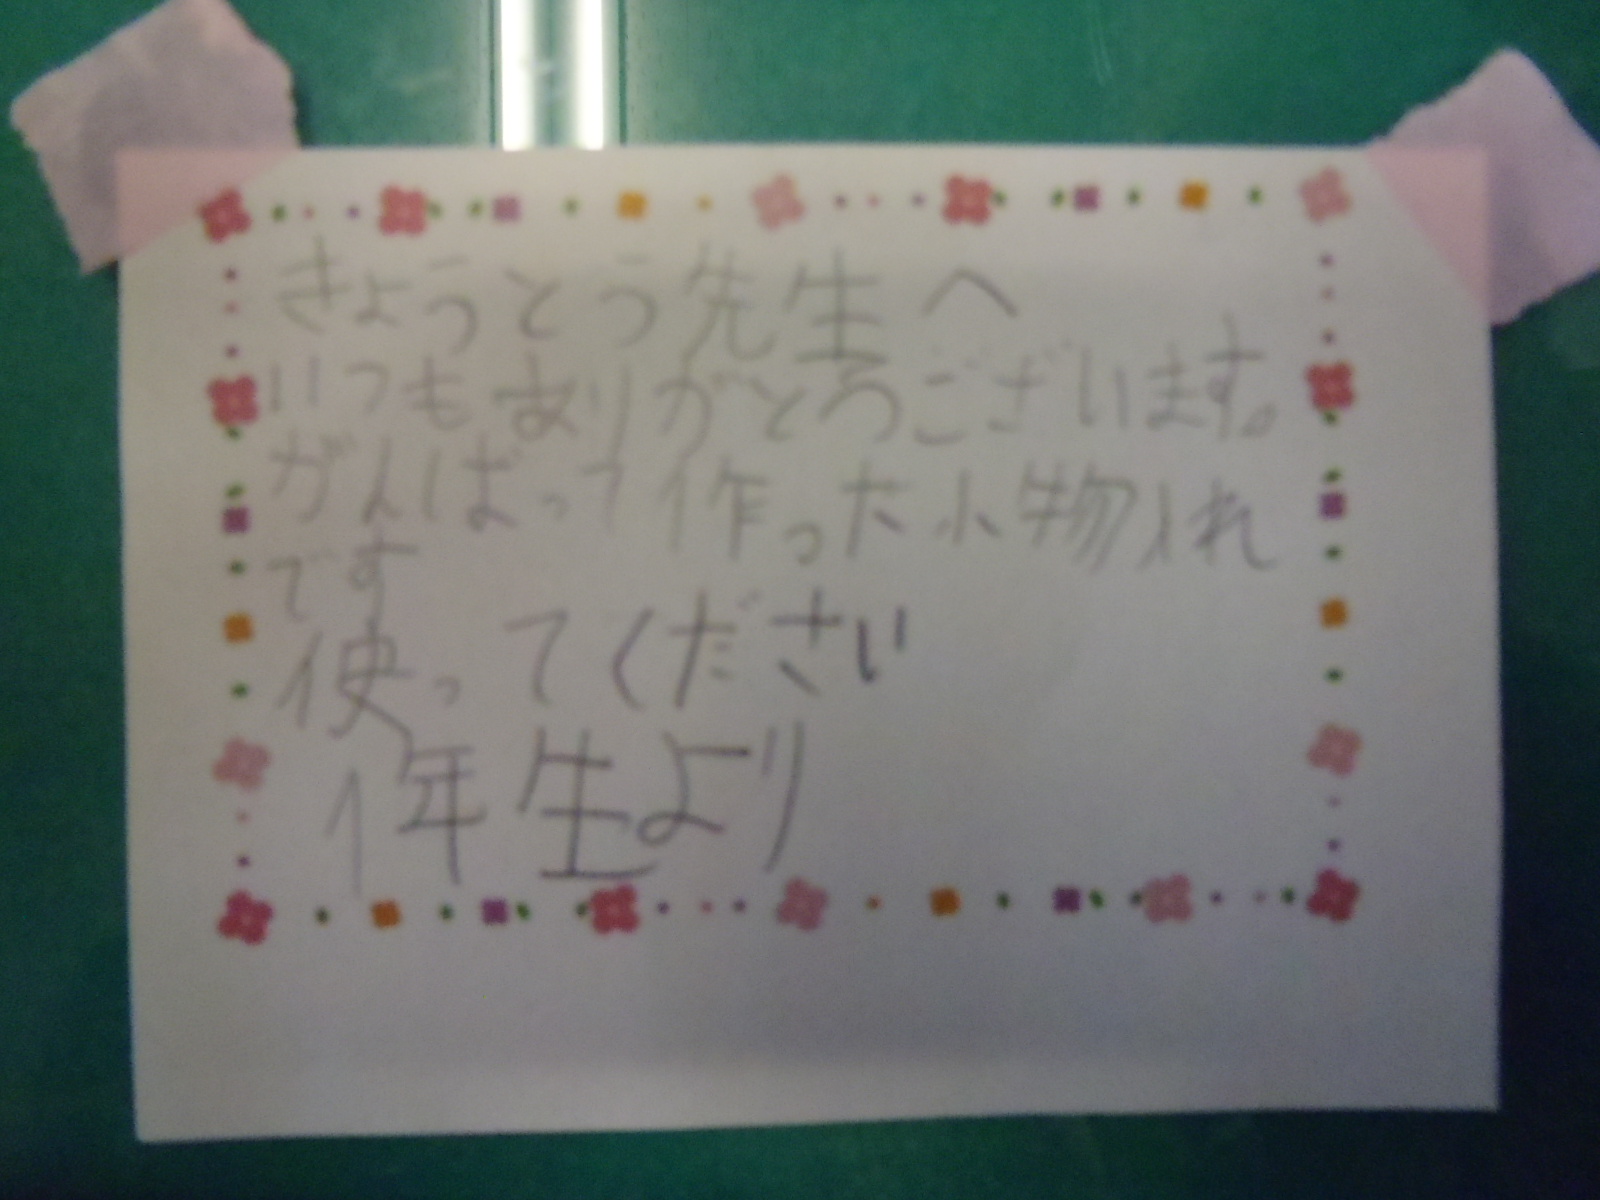 きょうとう先生へ
いつもありがとうございます。
がんばって作った小物入れ
です
使ってください
1年生より